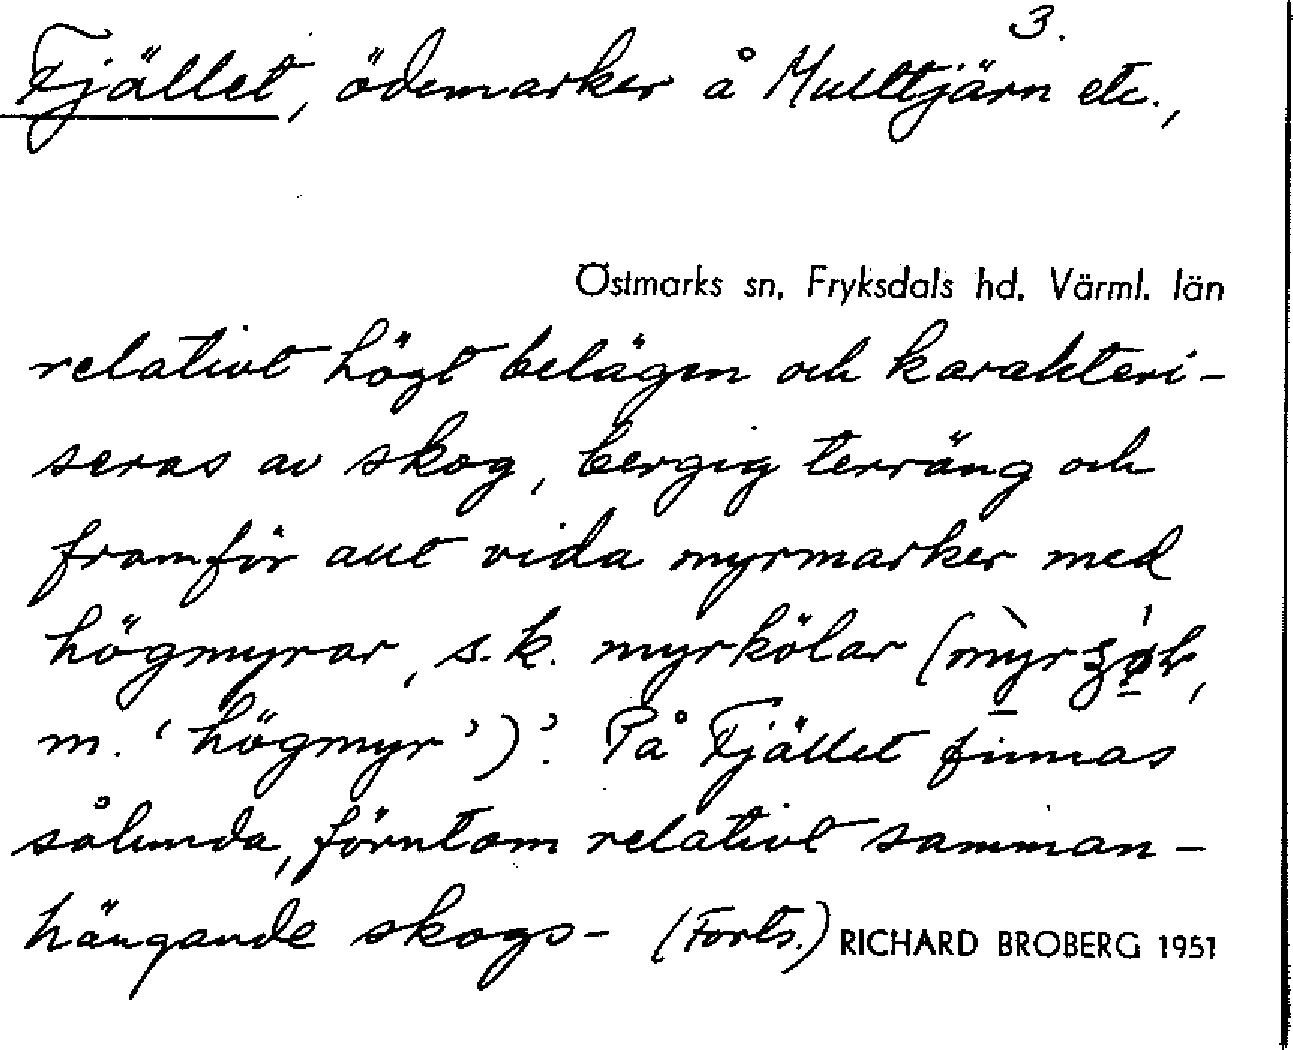 3.
Fjället, ödemarker å Multtjärn etc.,
Östmarks sn. Fryksdals hd. Värml. län
relativt högt belägen och karakteri-
seras av skog, bergig terräng och
framför allt vida myrmarker med
högmyrar, s.k. myrkölar (
m. 'högmyr')'. På Fjället finnas
sålunda, förutom relativt samman-
hängande skogs- (Forts.) RICHARD BROBERG 1951